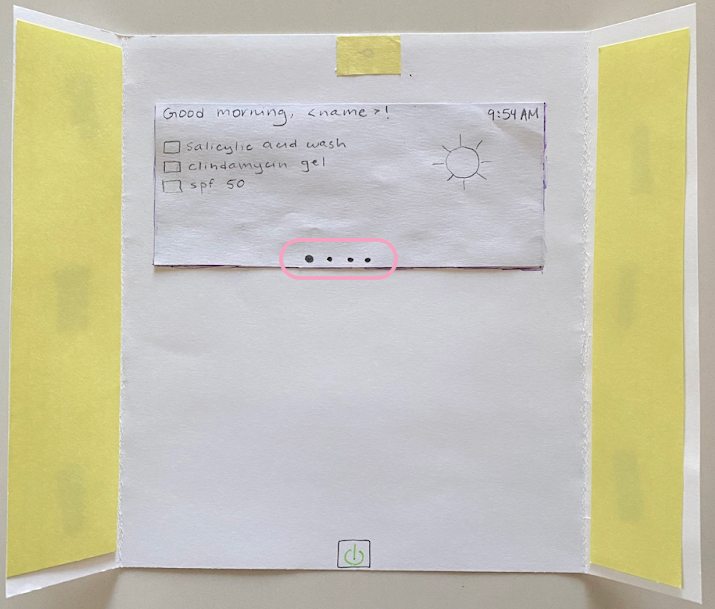 Good morning, <name>!
9:54 AM
Salicylic acid wash
clindamycin gel
spf 50